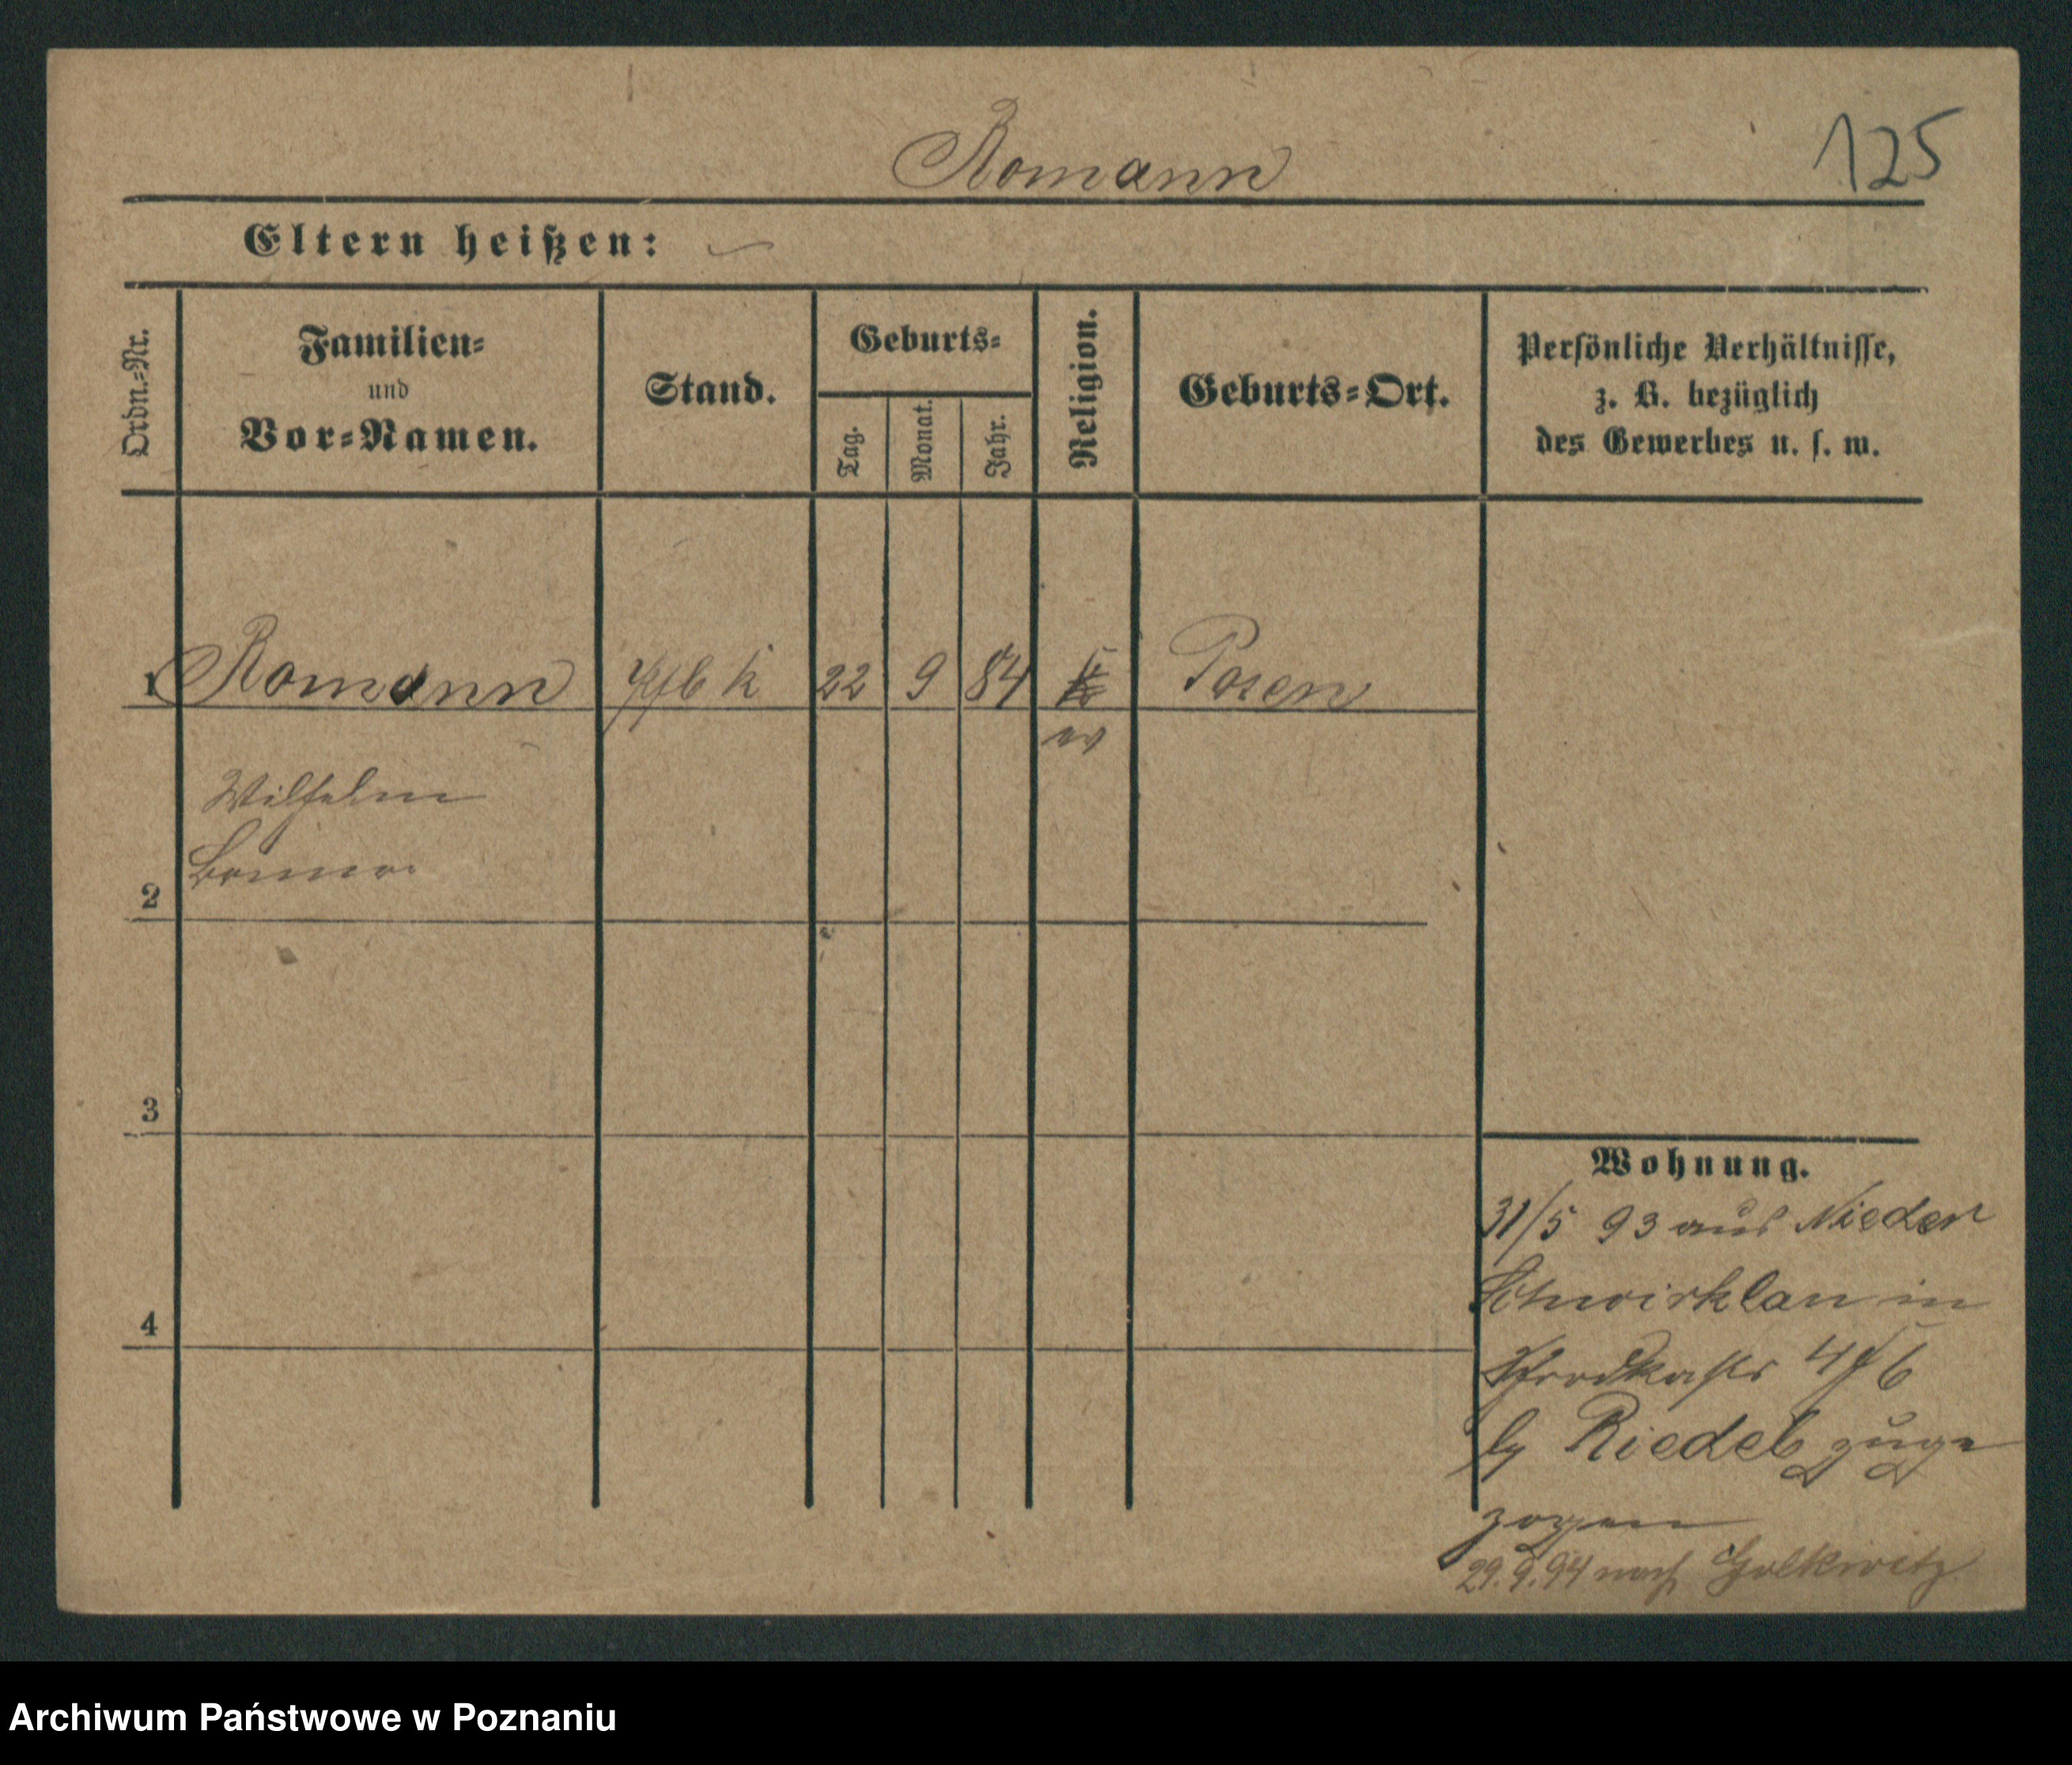 Romann 125
Eltern heißen:
Ordn.=Nr.
Familien=
und
Vor=Namen.
Stand.
Geburts=
Tag.
Monat.
Jahr.
Religion.
Geburts=Ort.
Persönliche Verhältnisse,
z. B. bezüglich
des Gewerbes u. s. w.
1 Romann 22 9 84 Posen
ev
Wilhelm
Bruno
2
3
4
Wohnung.
31/5 93 aus Nieder
Schwirklan in
6
by Riedel zuge
zogen
29.9.94 nach Golkwitz
Archiwum Państwowe w Poznaniu